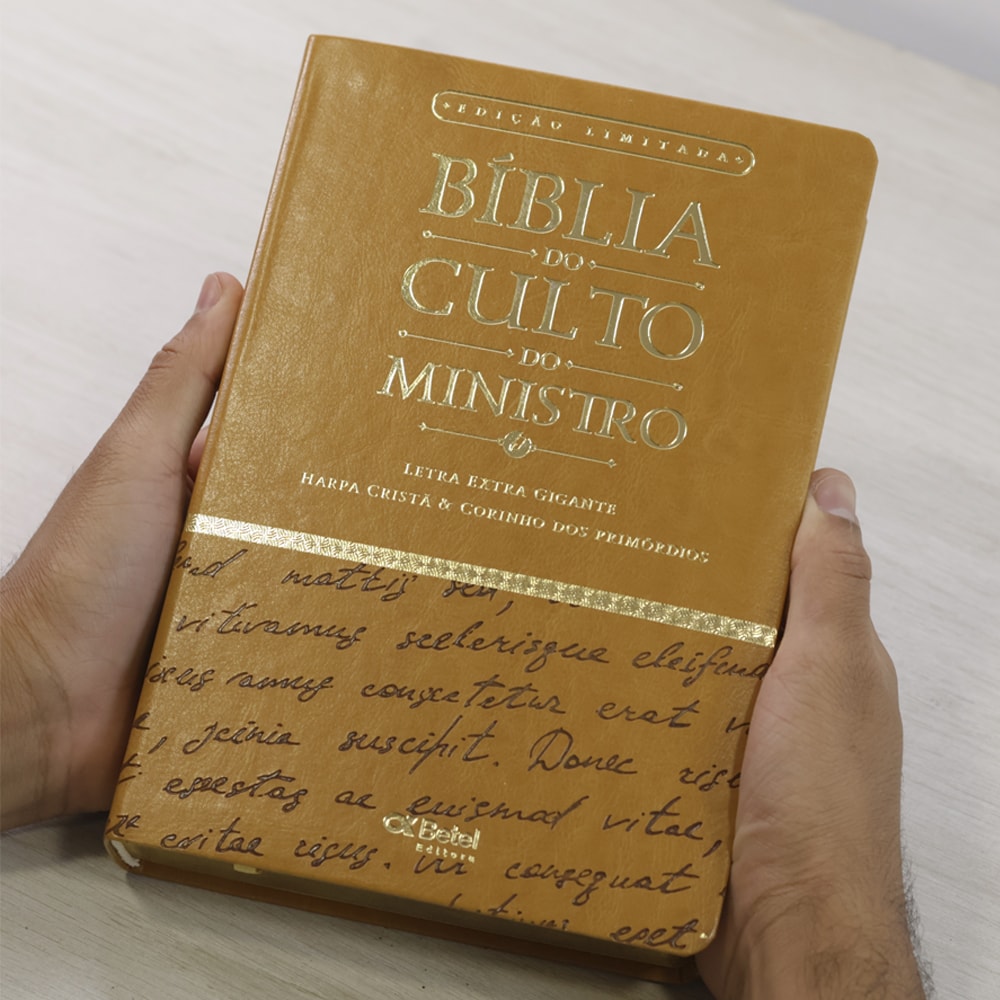 EDIÇÃO LIMITADA
BÍBLIA
DO
CULTO
DO
MINISTRO
LETRA EXTRA GIGANTE
HARPA CRISTÃ & CORINHO DOS PRIMÓRDIOS
mattis seu,
vitivamus scelerisque eleifend
amus consectetur erat
, jcinia suscipit. Donec risu
egestas ac euismod vitae,
Betel
Editora
evitae risus. In consequat
eget